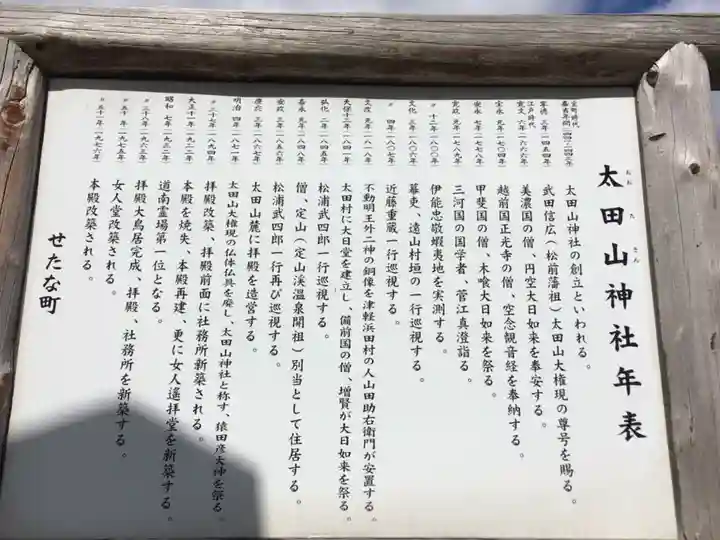 太田山神社年表
おおたさん
室町時代
嘉吉年間(一四四一~一四四三年) 太田山神社の創立といわれる。
享徳 三年(一四五四年) 武田信広(松前藩祖)太田山大権現の尊号を賜る。
江戸時代
寛文 六年(一六六六年) 美濃国の僧、円空大日如来を奉安する。
宝永 元年(一七〇四年) 越前国正光寺の僧、空念観音経を奉納する。
安永 七年(一七七八年) 甲斐国の僧、木喰大日如来を祭る。
寛政 元年(一七八九年) 三河国の国学者、菅江真澄詣る。
〃 十二年(一八〇〇年) 伊能忠敬蝦夷地を実測する。
文化 三年(一八〇六年) 幕吏、遠山村垣の一行巡視する。
〃 四年(一八〇七年) 近藤重蔵一行巡視する。
文政 元年(一八一八年) 不動明王外二神の銅像を津軽浜田村の人山田助右衛門が安置する。
天保十二年(一八四一年) 太田村に大日堂を建立し、備前国の僧、増賢が大日如来を祭る。
弘化 二年(一八四五年) 松浦武四郎一行巡視する。
嘉永 元年(一八四八年) 僧、定山(定山渓温泉開祖)別当として住居する。
安政 三年(一八五六年) 松浦武四郎一行再び巡視する。
慶応 三年(一八六七年) 太田山麓に拝殿を造営する。
明治 四年(一八七一年) 太田山大権現の仏体仏具を廃し、太田山神社と称す、猿田彦大神を祭る。
〃 二十七年(一八九四年) 拝殿改築、拝殿前面に社務所新築される。
大正十一年(一九二二年) 本殿を焼失、本殿再建、更に女人遥拝堂を新築する。
昭和 七年(一九三二年) 道南霊場第一位となる。
〃 三十八年(一九六三年) 拝殿大鳥居完成、拝殿、社務所を新築する。
〃 五十年(一九七五年) 女人堂改築される。
〃 五十一年(一九七六年) 本殿改築される。
せたな町